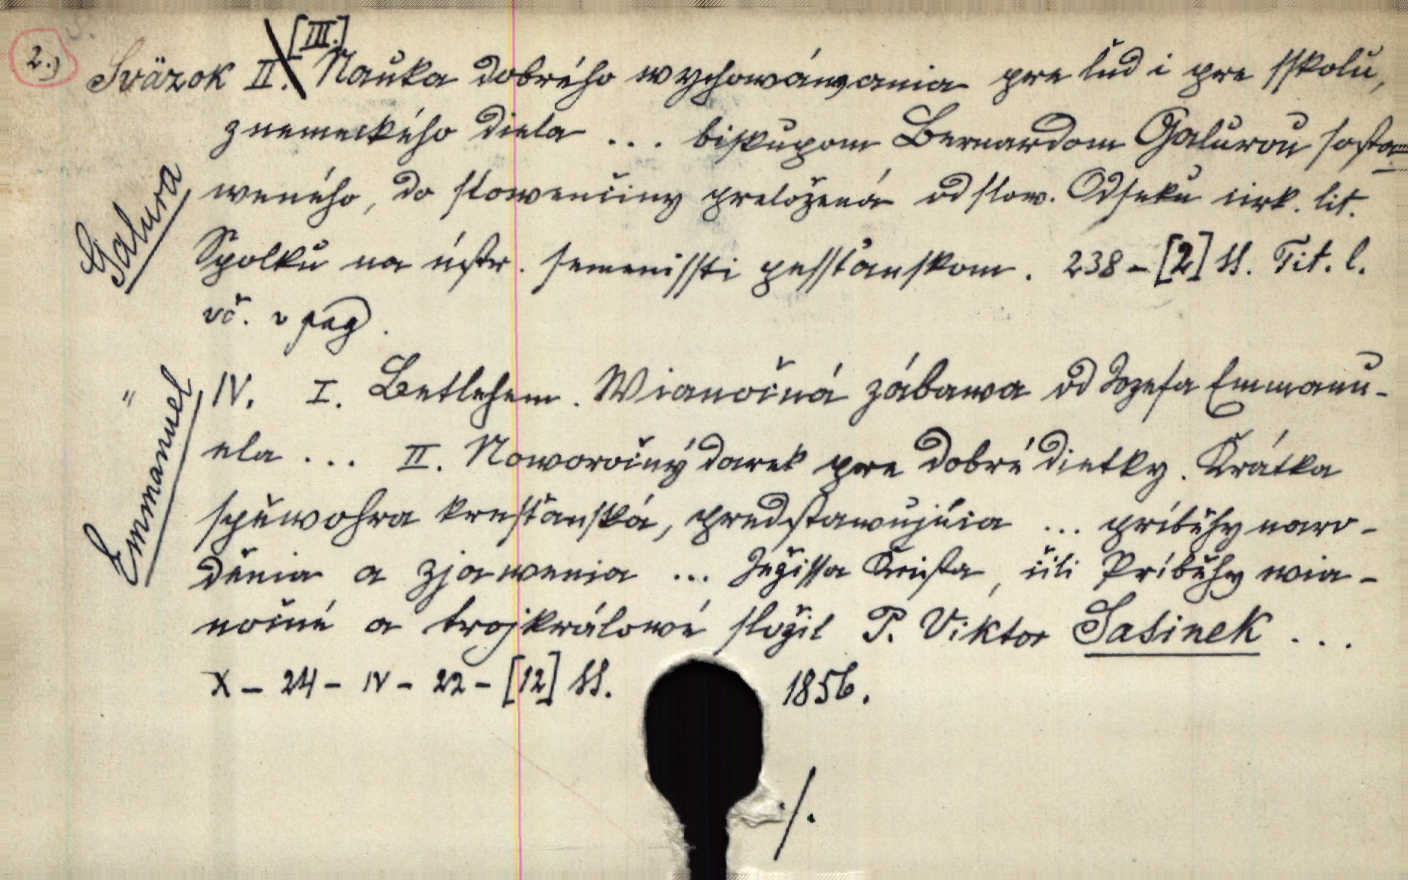 2.)
[III.]
Sväzok II. Nauka dobrého wychowáwania pre lud i pre sskolu,
z nemeckého diela ... biskupom Bernardom Galurou sosta-
weného, do slowenčiny preložená od slow. Odseku cirk. lit.
Spolku na ústr. semenissti pessťanskom. 238 - [2] ss. Tit. l.
vč. v pag.
Galura
" IV. I. Betlehem. Wianočná zábawa od Jozefa Emmanu-
ela ... II. Noworočný darek pre dobré dietky. Krátka
spěwohra kresťanská, predstawujúcia ... príběhy naro-
děnia a zjawenia ... Ježissa Krista, čili Príběhy wia-
nočné a trojkrálowé složil P. Viktor Sasinek ...
X - 24 - IV - 22 - [12] ss. 1856.
Emmanuel
./.